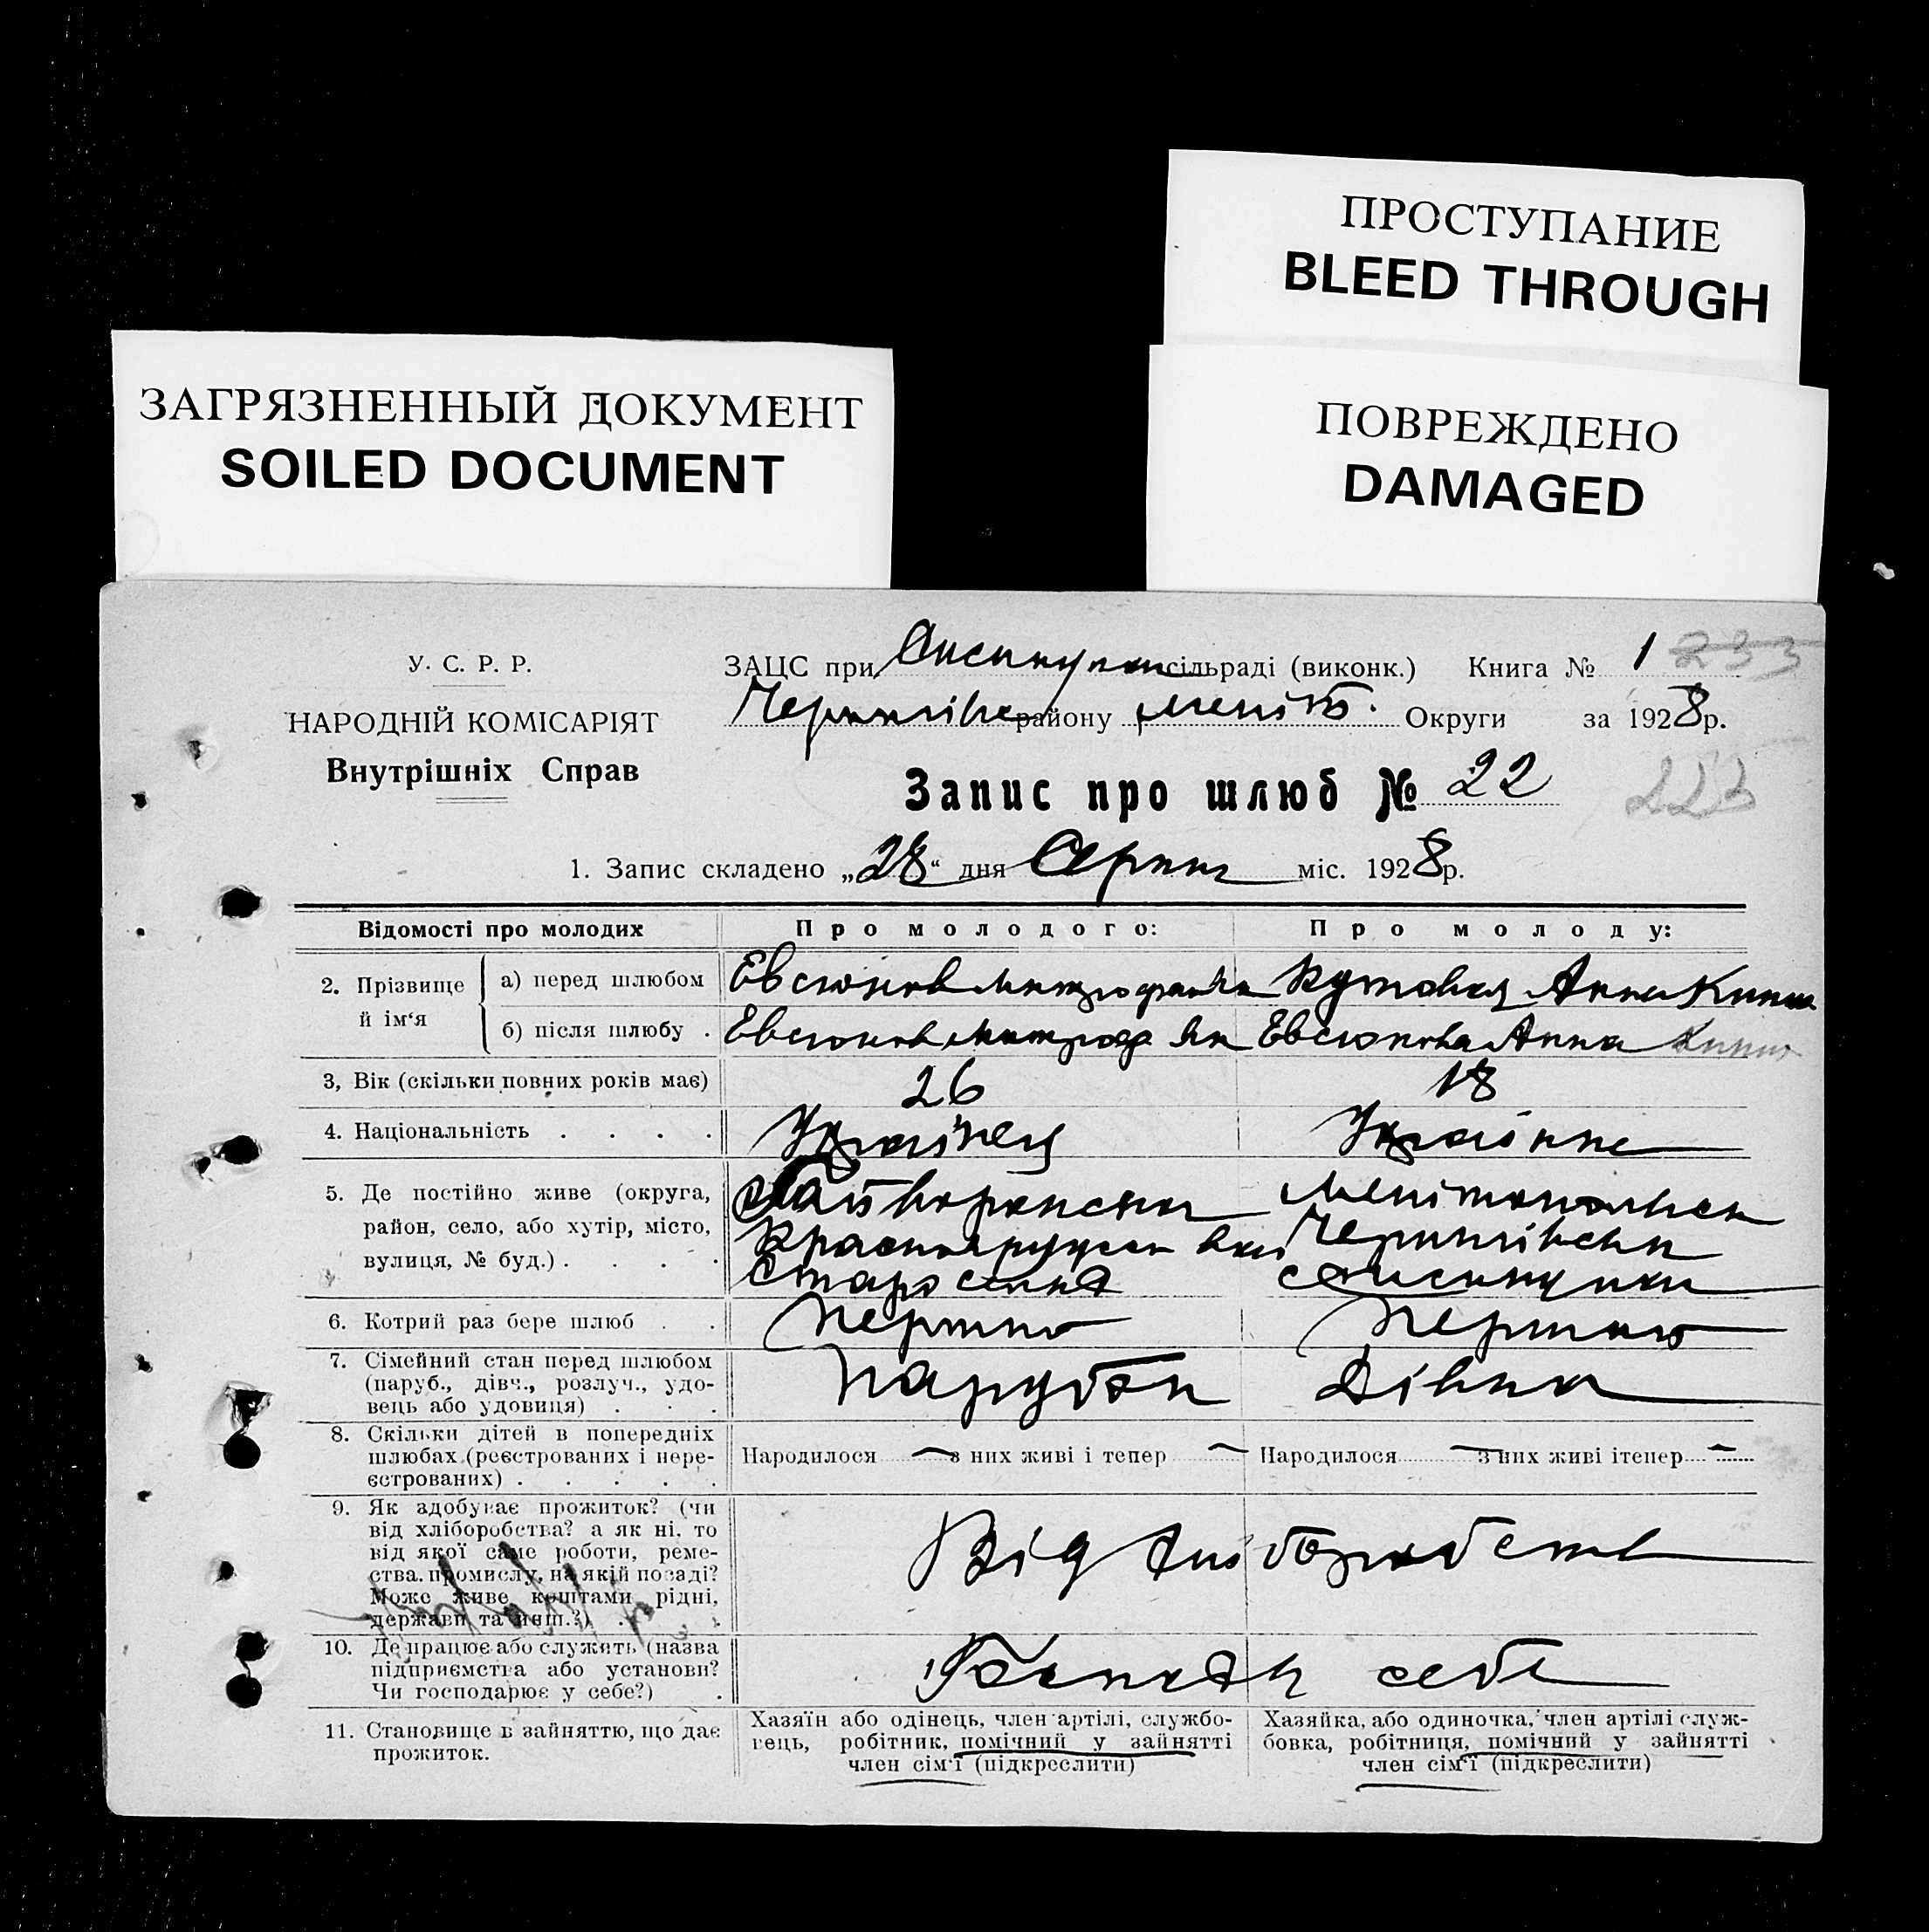 ПРОСТУПАНИЕ
BLEED THROUGH
ЗАГРЯЗНЕННЫЙ ДОКУМЕНТ
SOILED DOCUMENT
ПОВРЕЖДЕНО
DAMAGED
У. С. Р. Р.
НАРОДНІЙ КОМІСАРІЯТ
Внутрішніх Справ
ЗАЦС при сільраді (виконк.) Книга № 1 233
району Меліт. Округи за 1928 р.
Запис про шлюб № 22 223
1. Запис складено „28“ дня Серпня міс. 1928 р.
Відомості про молодих Про молодого: Про молоду:
2. Прізвище й ім‘я а) перед шлюбом Евсюков Кутовая Анна
б) після шлюбу . Евсюков Митроф Як Евсюкова Анна
3, Вік (скільки повних років має) 26 18
4. Національність . . . . Українец Українка
5. Де постійно живе (округа,
район, село, або хутір, місто,
вулиця, № буд.) . . . .
6. Котрий раз бере шлюб . . Перший Першый
7. Сімейний стан перед шлюбом
(паруб., дівч., розлуч., удо-
вець або удовиця) . . . Парубок Дівка
8. Скільки дітей в попередніх
шлюбах (реєстрованих і нере-
єстрованих) . . . . .
Народилося — з них живі і тепер — Народилося — з них живі ітепер —
9. Як здобуває прожиток? (чи
від хліборобства? а як ні, то
від якої саме роботи, реме-
ства, промислу, на якій посаді?
Може живе коштами рідні,
держави та инш.?) . . .
Від хліборобства
10. Де працює або служить (назва
підприємства або установи?
Чи господарює у себе?) .
себе
11. Становище в зайняттю, що дає
прожиток.
Хазяїн або одінець, член артілі, службо-
вець, робітник, помічний у зайнятті
член сім‘ї (підкреслити)
Хазяйка, або одиночка, член артілі служ-
бовка, робітниця, помічний у зайнятті
член сім‘ї (підкреслити)